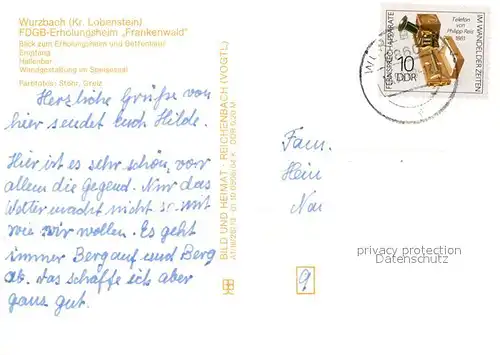 Wurzbach (Kr. Lobenstein)
FDGB-Erholungsheim „Frankenwald"
Blick zum Erholungsheim und Bettenhaus
Eingang
Hallenbar
Wandgestaltung im Speisesaal
Farbfotos: Stöhr, Greiz
Herzliche Grüße von
hier sendet Euch Hilde.
Hier ist es sehr schön, vor
allem die Gegend. Nur das
Wetter macht nicht so mit
wie wir wollen. Es geht
immer Berg auf und Berg
ab. das schaffe ich aber
ganz gut.
BILD UND HEIMAT · REICHENBACH (VOGTL)
Fam.
Hein
Nau
9
FERNSPRECHAPPARATE
IM WANDEL DER ZEITEN
Telefon von
Philipp Reis
1861
10
DDR
privacy protection
Datenschutz